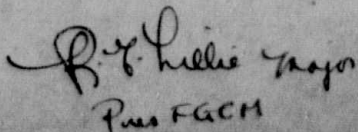 R. G. Lillie Major
Pres FGCM